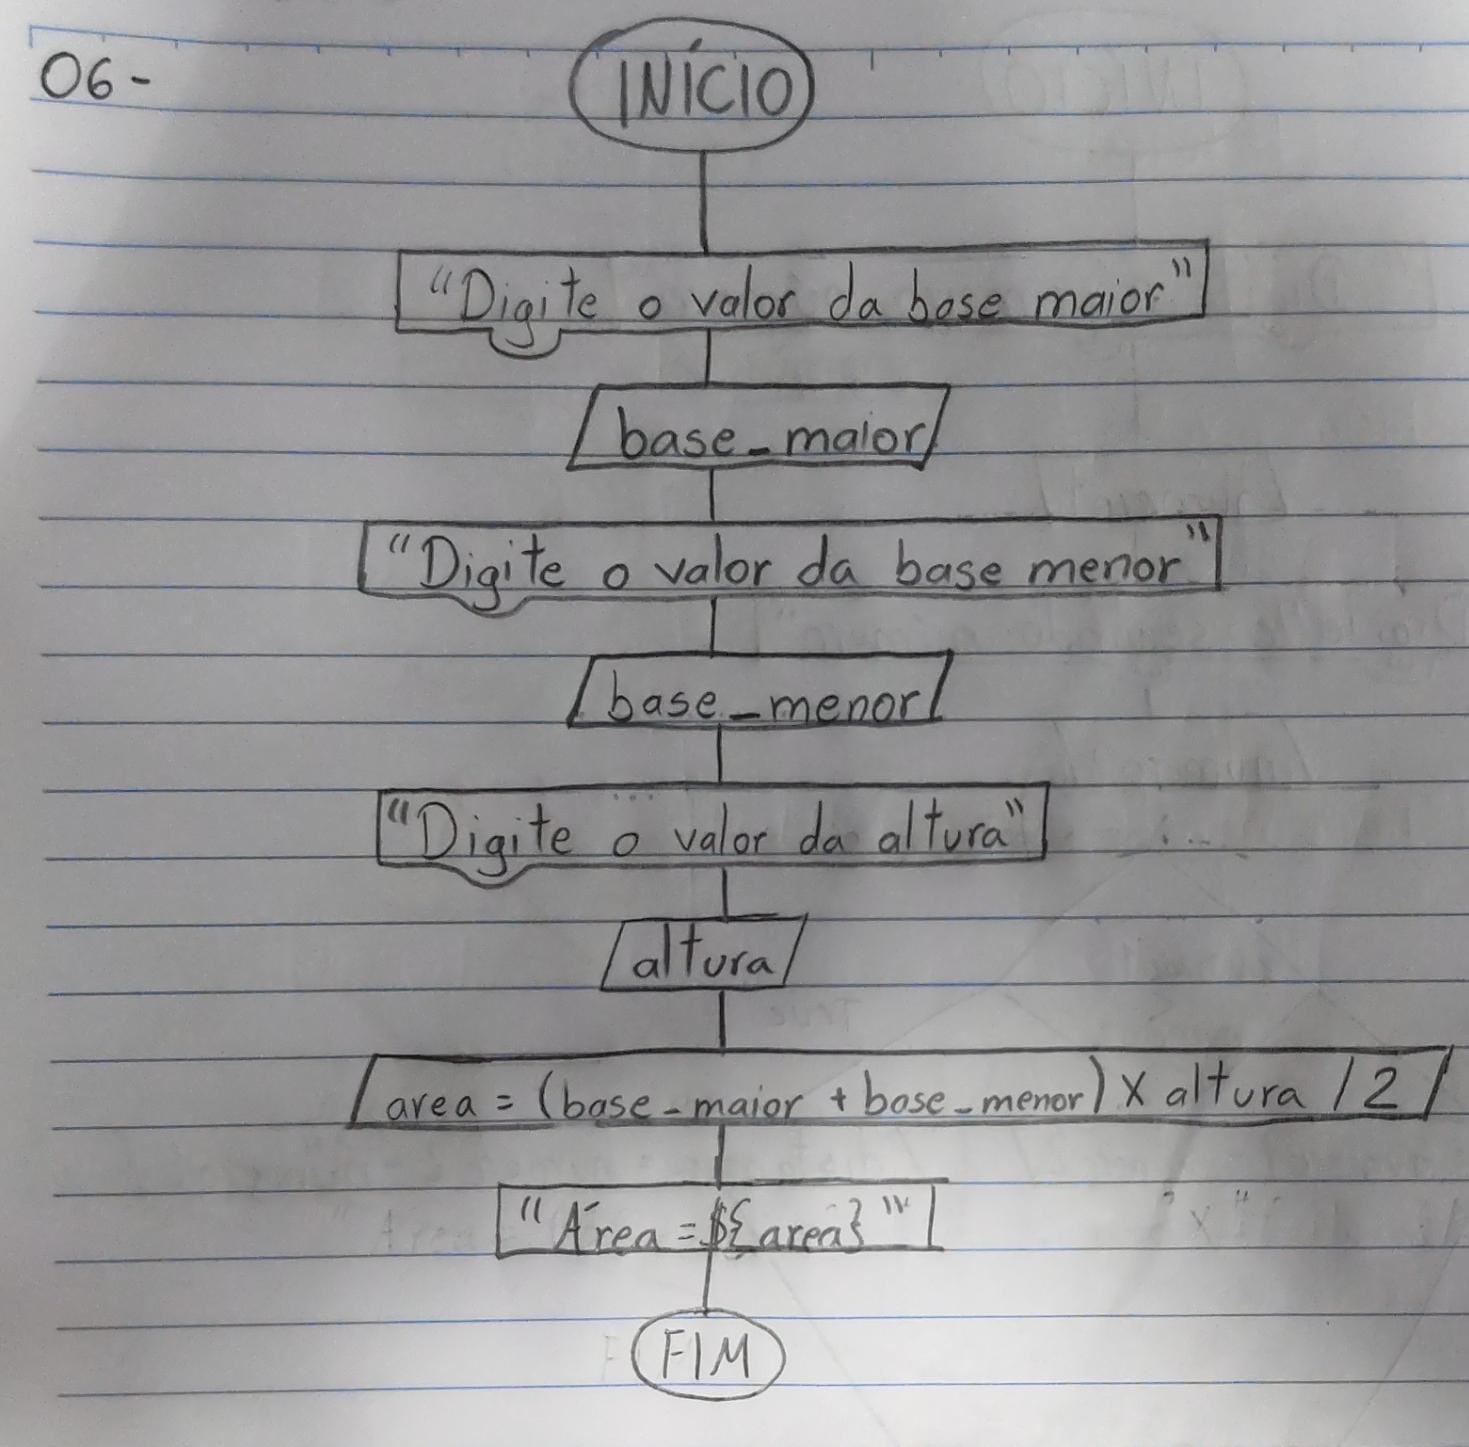 06-
INÍCIO
"Digite o valor da base maior"
base_maior
"Digite o valor da base menor"
base_menor
"Digite o valor da altura"
altura
area = (base_maior + base_menor) X altura / 2
"Área = ${area}"
FIM